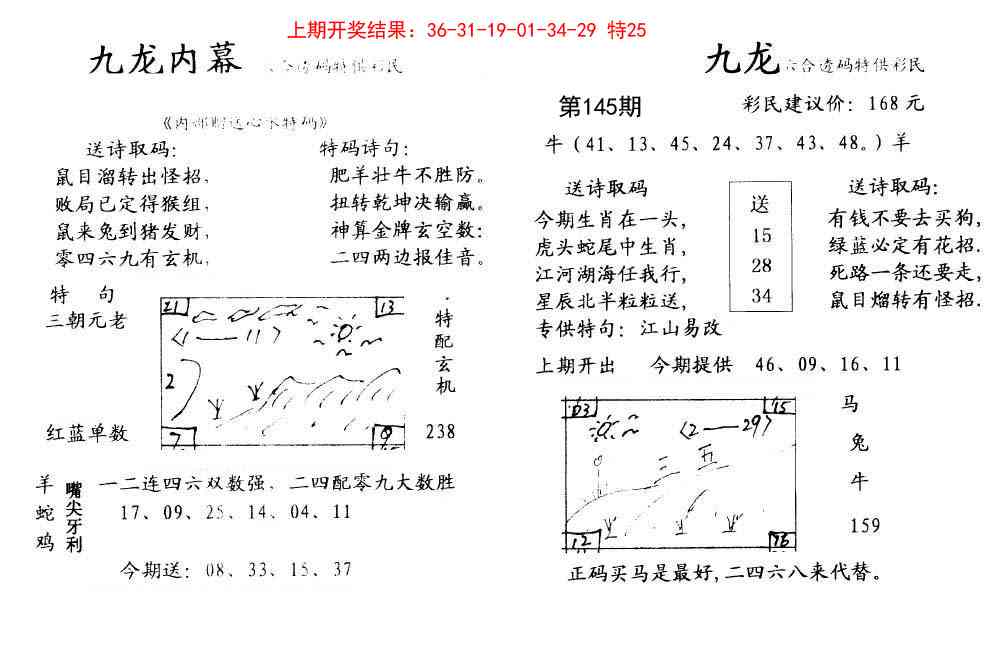 上期开奖结果：36-31-19-01-34-29 特25
九龙内幕
六合透码特供彩民
《内部赠送心水特码》
送诗取码：
鼠目溜转出怪招，
败局已定得猴组，
鼠来兔到猪发财，
零四六九有玄机，
特码诗句：
肥羊壮牛不胜防。
扭转乾坤决输赢。
神算金牌玄空数：
二四两边报佳音。
特 句
三朝元老
红蓝单数
21
13
〈1——11〉
2
7
9
特配玄机
238
羊
蛇
鸡
嘴尖牙利
一二连四六双数强、二四配零九大数胜
17、09、25、14、04、11
今期送：08、33、15、37
九龙六合透码特供彩民
第145期
彩民建议价：168元
牛（41、13、45、24、37、43、48。）羊
送诗取码
今期生肖在一头，
虎头蛇尾中生肖，
江河湖海任我行，
星辰北半粒粒送，
专供特句：江山易改
送
15
28
34
送诗取码：
有钱不要去买狗，
绿蓝必定有花招.
死路一条还要走，
鼠目熘转有怪招.
上期开出 今期提供 46、09、16、11
03
15
〈2——29〉
三五
12
16
马
兔
牛
159
正码买马是最好，二四六八来代替。